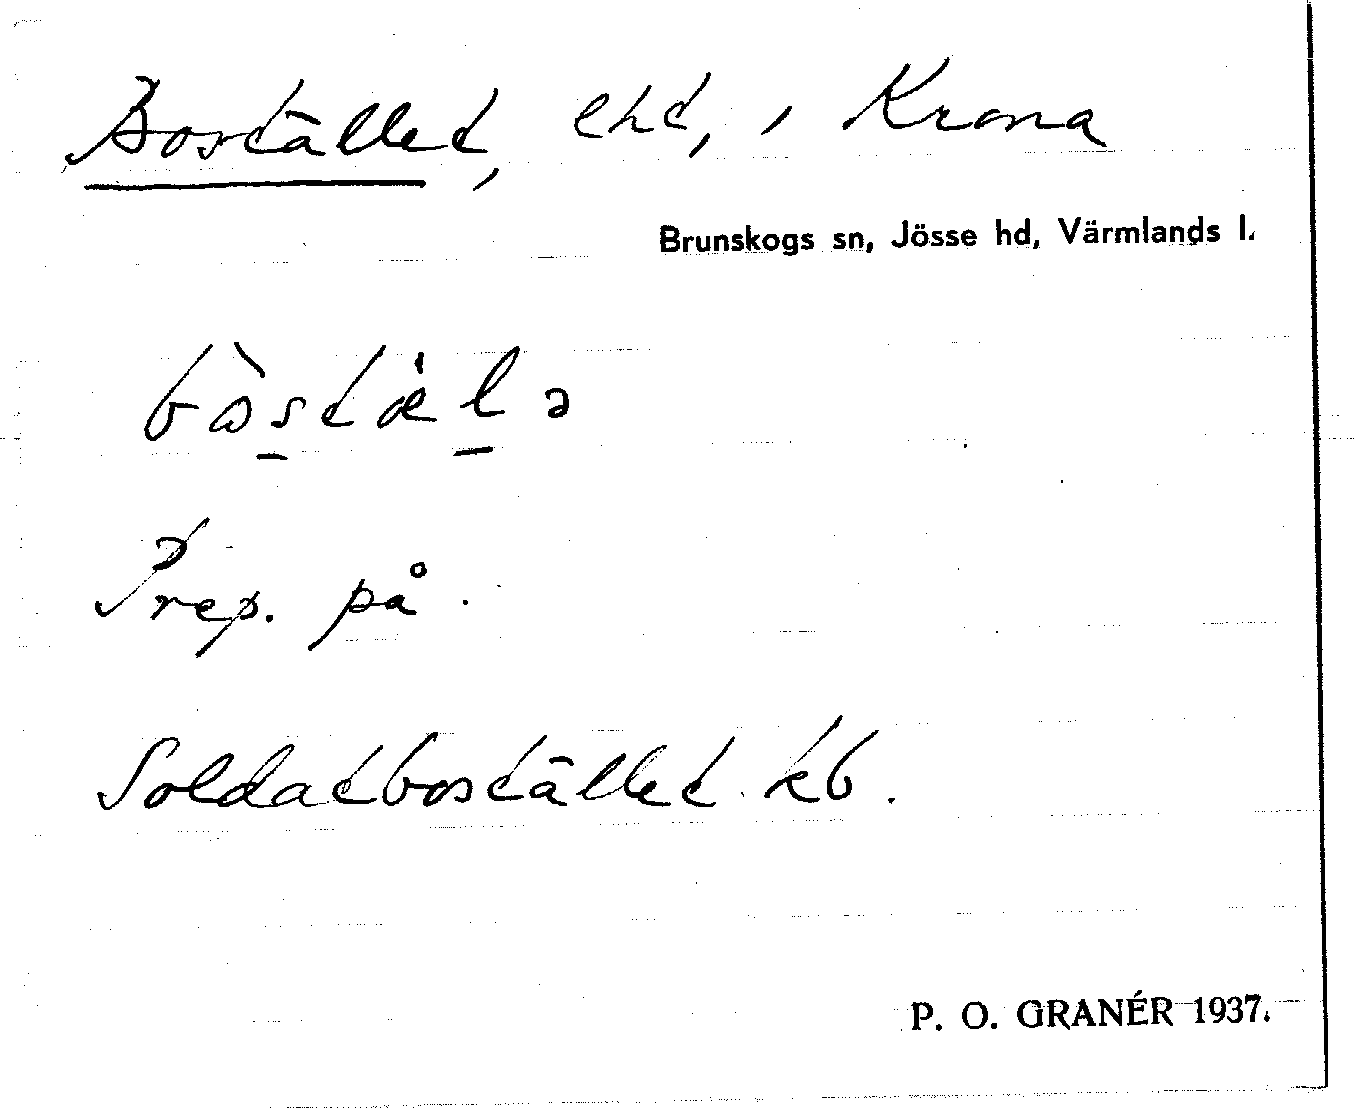 Bostället, lht, i Krona
Brunskogs sn, Jösse hd, Värmlands l.
Prep. på.
Soldatbostället kb.
P. O. GRANÉR 1937.